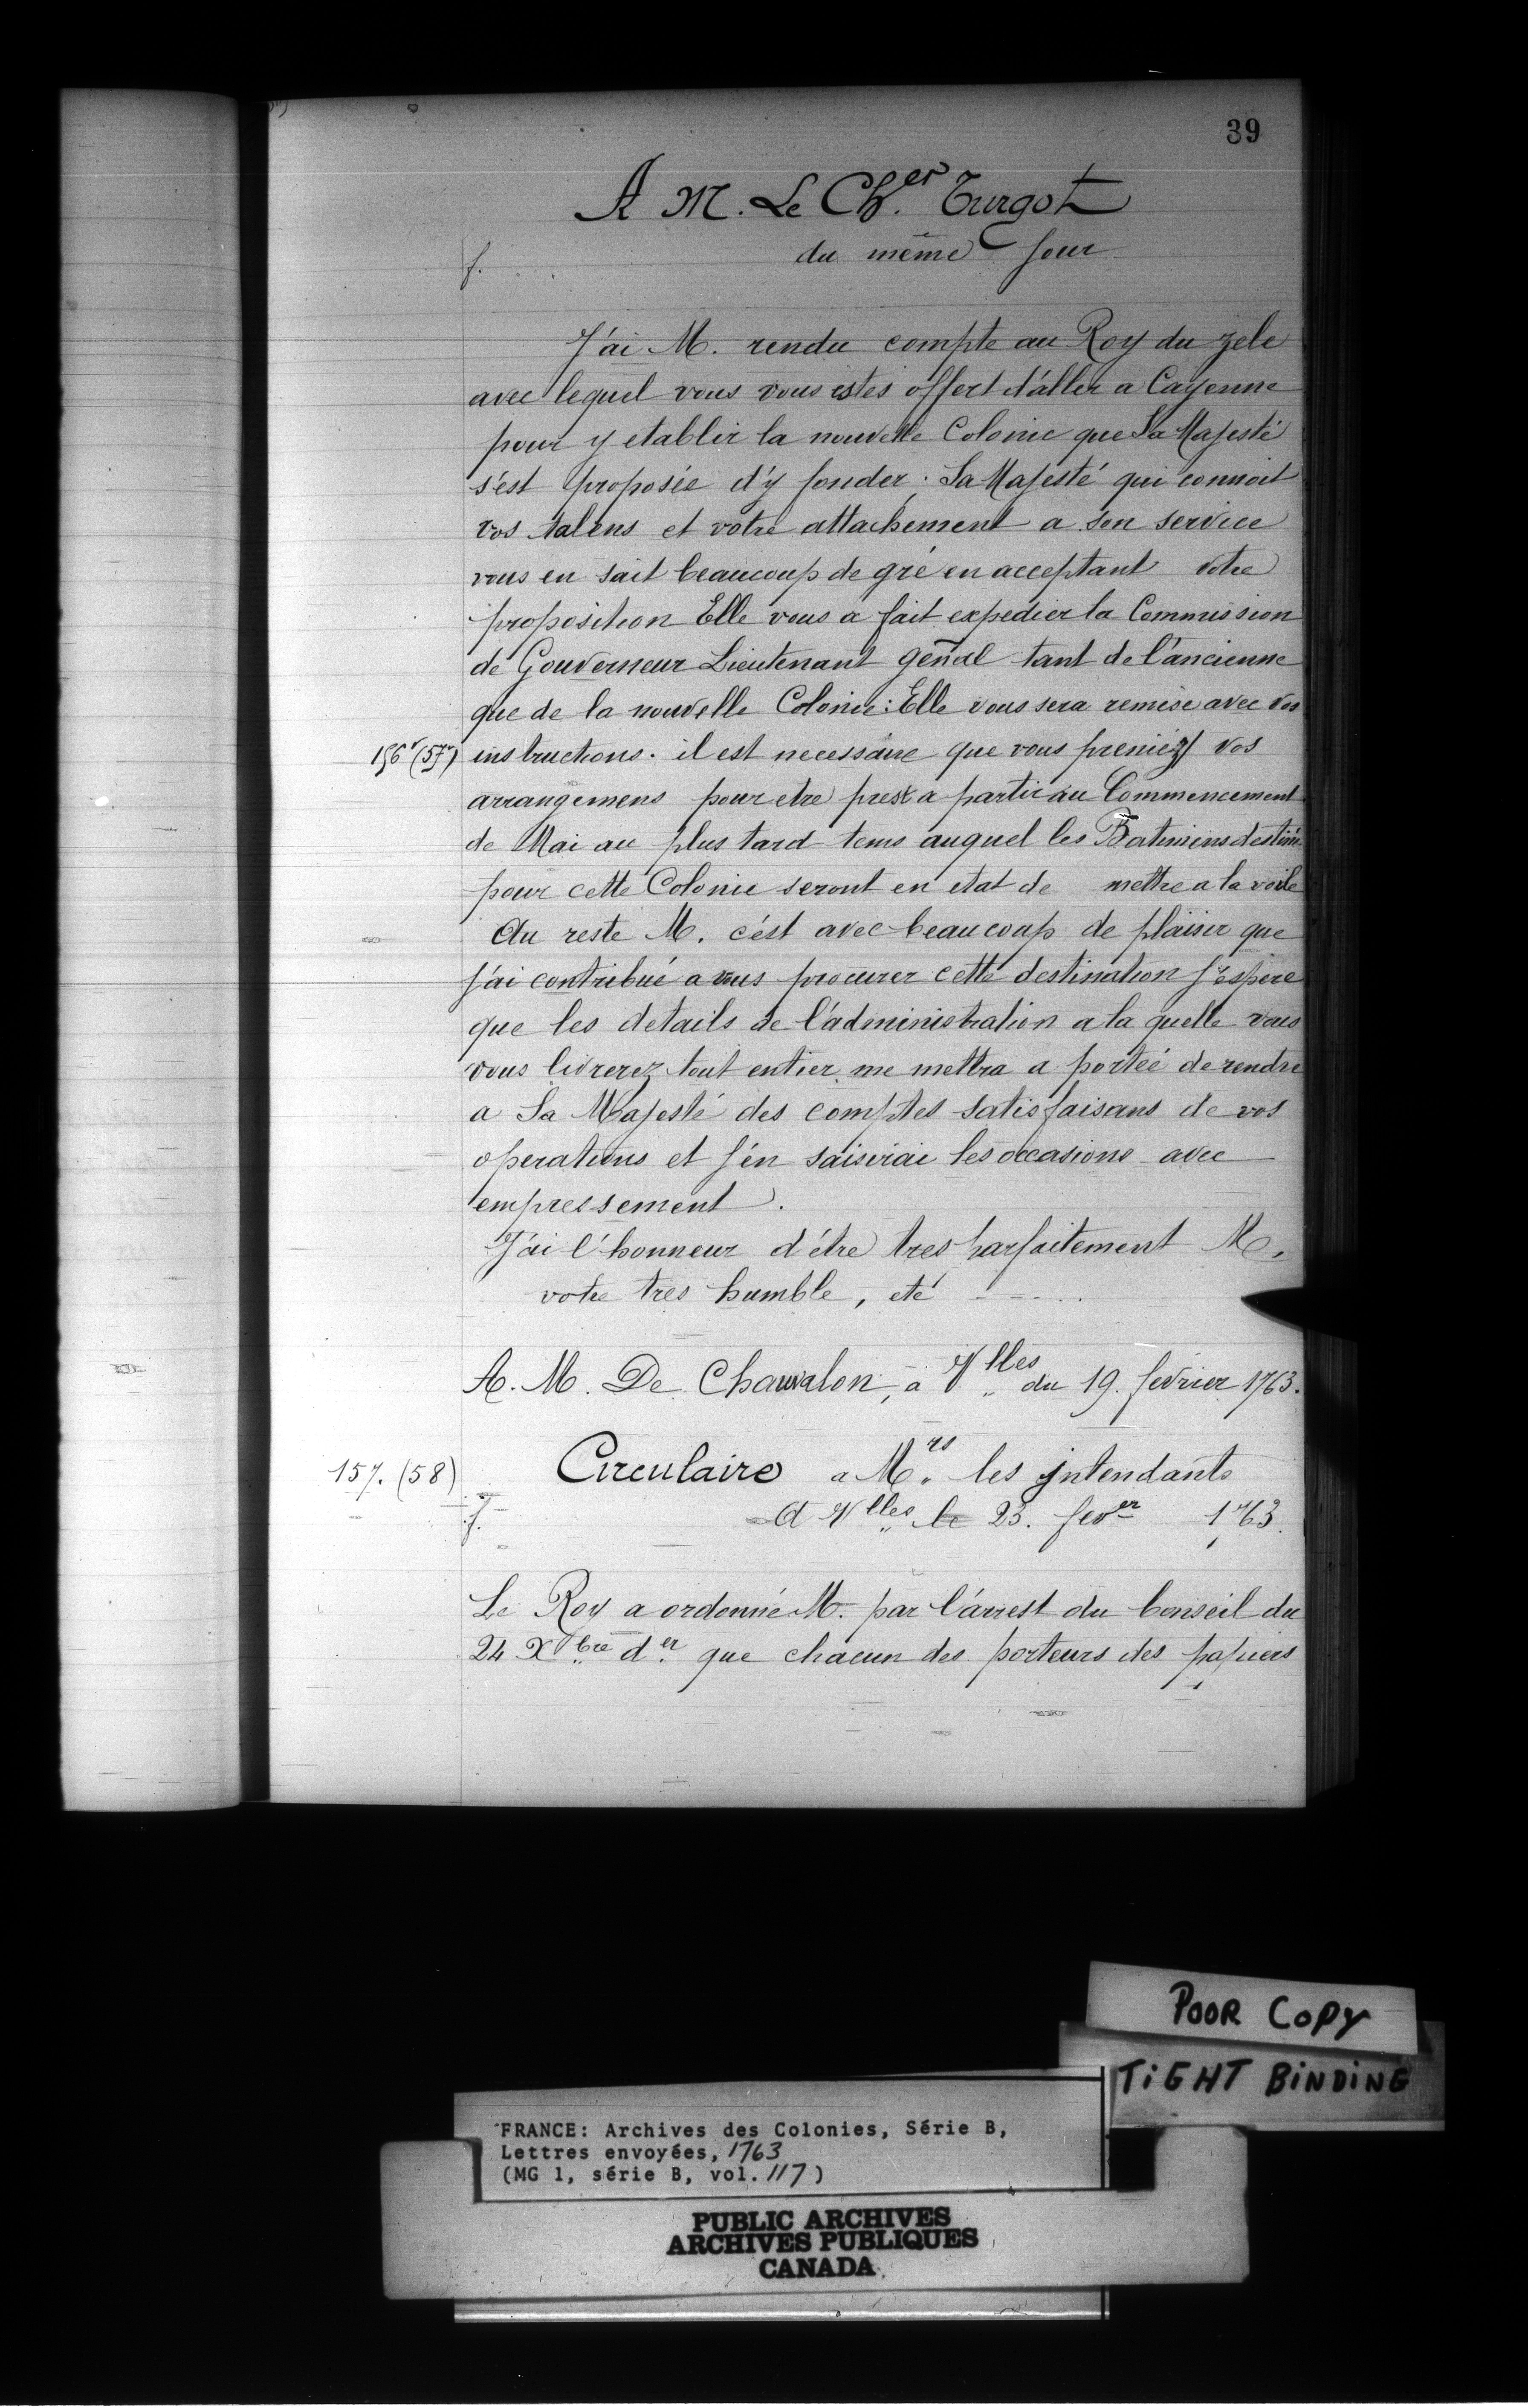 39
A M. Le Ch.er Turgot
du même Jour
f.
J'ai M. rendu compte au Roy du zele
avec lequel vous vous estes offert d'aller a Cayenne
pour y etablir la nouvelle Colonie que Sa Majesté
s'est proposée d'y fonder; Sa Majesté qui connoit
vos talens et votre attachement a son service
vous en sait beaucoup de gré en acceptant votre
proposition Elle vous a fait expedier la Commission
de Gouverneur Lieutenant genāl tant de l'ancienne
que de la nouvelle Colonie: Elle vous sera remise avec vos
156v (57v) instructions. il est necessaire que vous preniéz vos
arrangemens pour etre prest a partir au Commencement
de Mai au plus tard tems auquel les Batimens destinés
pour cette Colonie seront en etat de mettre a la voile
Au reste M. c'est avec beaucoup de plaisir que
j'ai contribué a vous procurer cette destination j'espere
que les details de l'administration a la quelle vous
vous livrerez tout entier me mettra a portée de rendre
a Sa Majesté des comptes satisfaisans de vos
operations et j'en saisirai les occasions avec
empressement.
J'ai l'honneur d'être tres parfaitement M.
votre tres humble, etc -----
A. M. De Chauvalon, à Vlles du 19. fevrier 1763.
157. (58) Circulaire a Mrs les intendants
f. A Vlles le 23. fever 1763.
Le Roy a ordonné M. par l'arrest du Conseil du
24 Xbre der que chacun des porteurs des papiers
POOR COPY
TIGHT BINDING
FRANCE: Archives des Colonies, Série B,
Lettres envoyées, 1763
(MG 1, série B, vol. 117)
PUBLIC ARCHIVES
ARCHIVES PUBLIQUES
CANADA